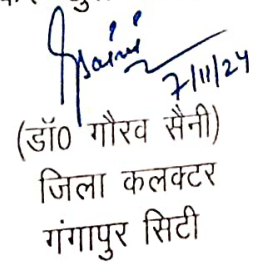 7/11/24
(डॉ0 गौरव सैनी)
जिला कलक्टर
गंगापुर सिटी